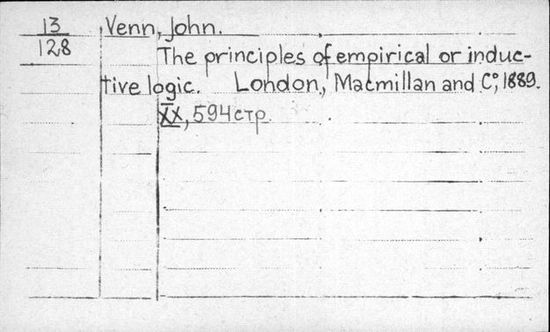 13 Venn, John.
128
The principles of empirical or induc-
tive logic. London, Macmillan and Cº, 1889.
XX, 594 стр.